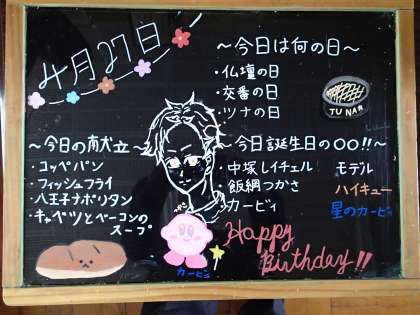 4月27日
～今日は何の日～
・仏壇の日
・交番の日
・ツナの日
TUNA
～今日の献立～
・コッペパン
・フィッシュフライ
・八王子ナポリタン
・キャベツとベーコンの
スープ
～今日誕生日の〇〇!!～
・中塚レイチェル モデル
・飯綱つかさ ハイキュー
・カービィ 星のカービィ
カービィ
Happy
Birthday!!